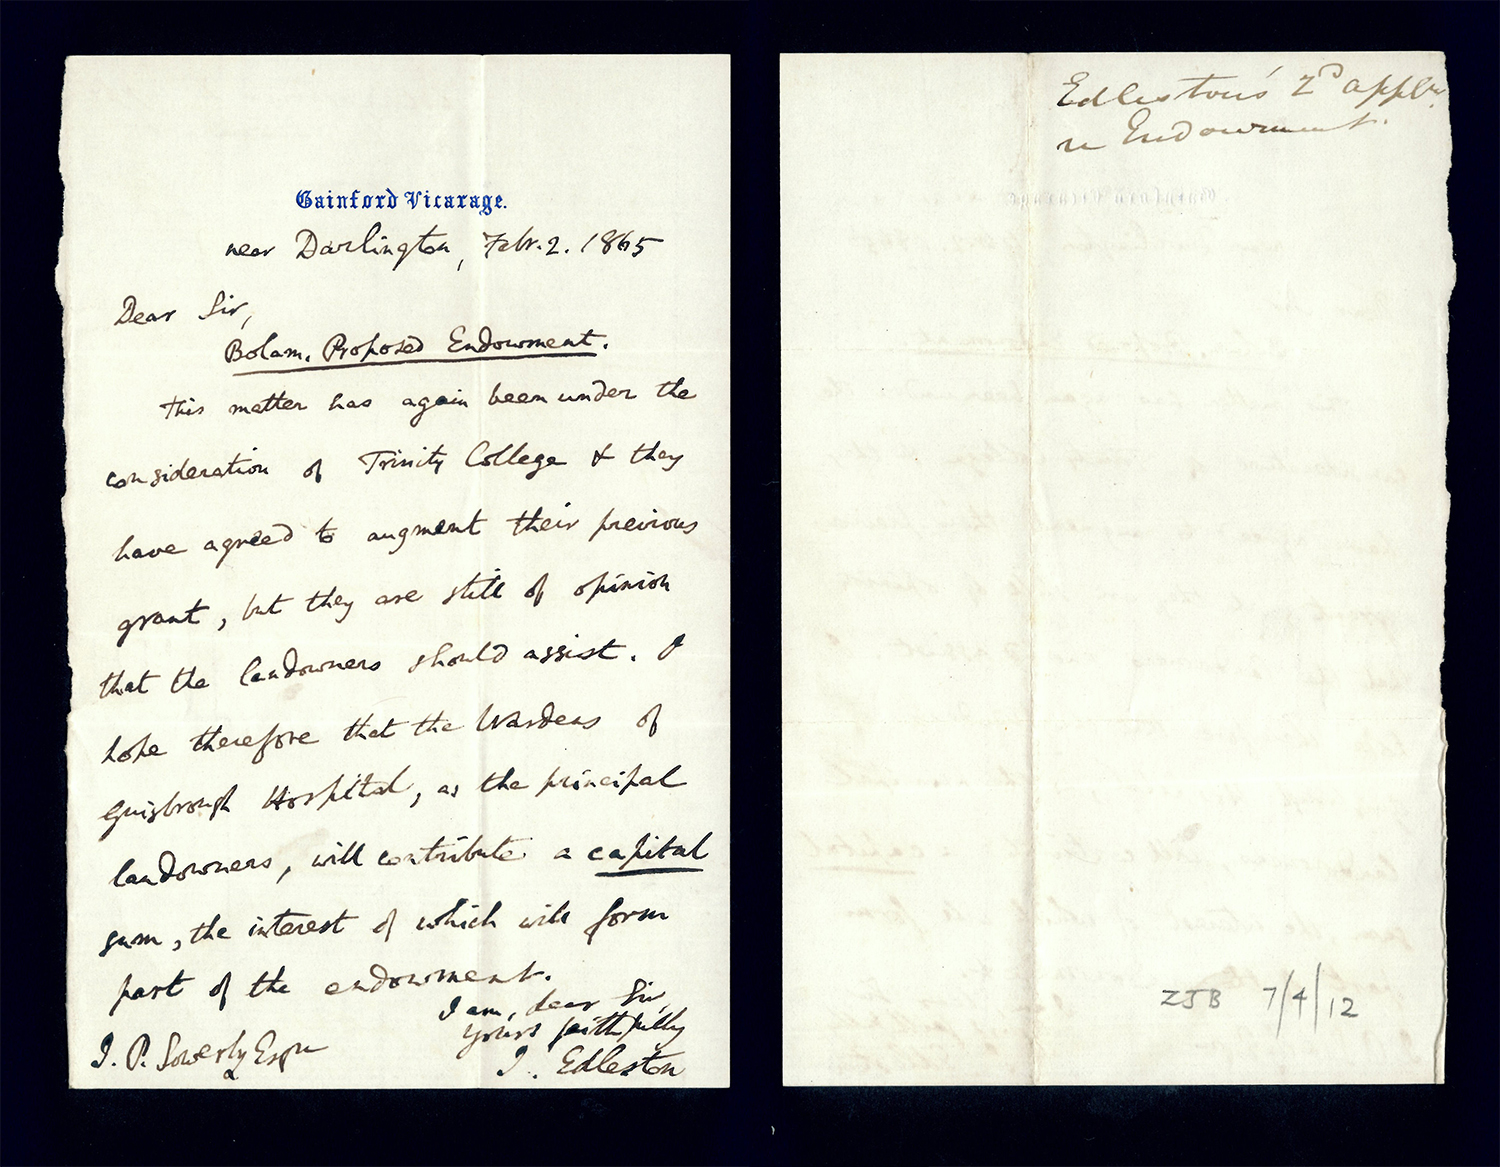 Gainford Vicarage.
near Darlington, Febr. 2. 1865
Dear Sir,
Bolam. Proposed Endowment.
This matter has again been under the
consideration of Trinity College & they
have agreed to augment their previous
grant, but they are still of opinion
that the landowners should assist. I
hope therefore that the Wardens of
Guisbrough Hospital, as the principal
landowners, will contribute a capital
sum, the interest of which will form
part of the endowment.
I am, dear Sir,
Yours faithfully
J. Edleston
J. P. Sowerby Esqre
Edleston's 2nd appln.
re Endowment.
ZJB 7/4/12